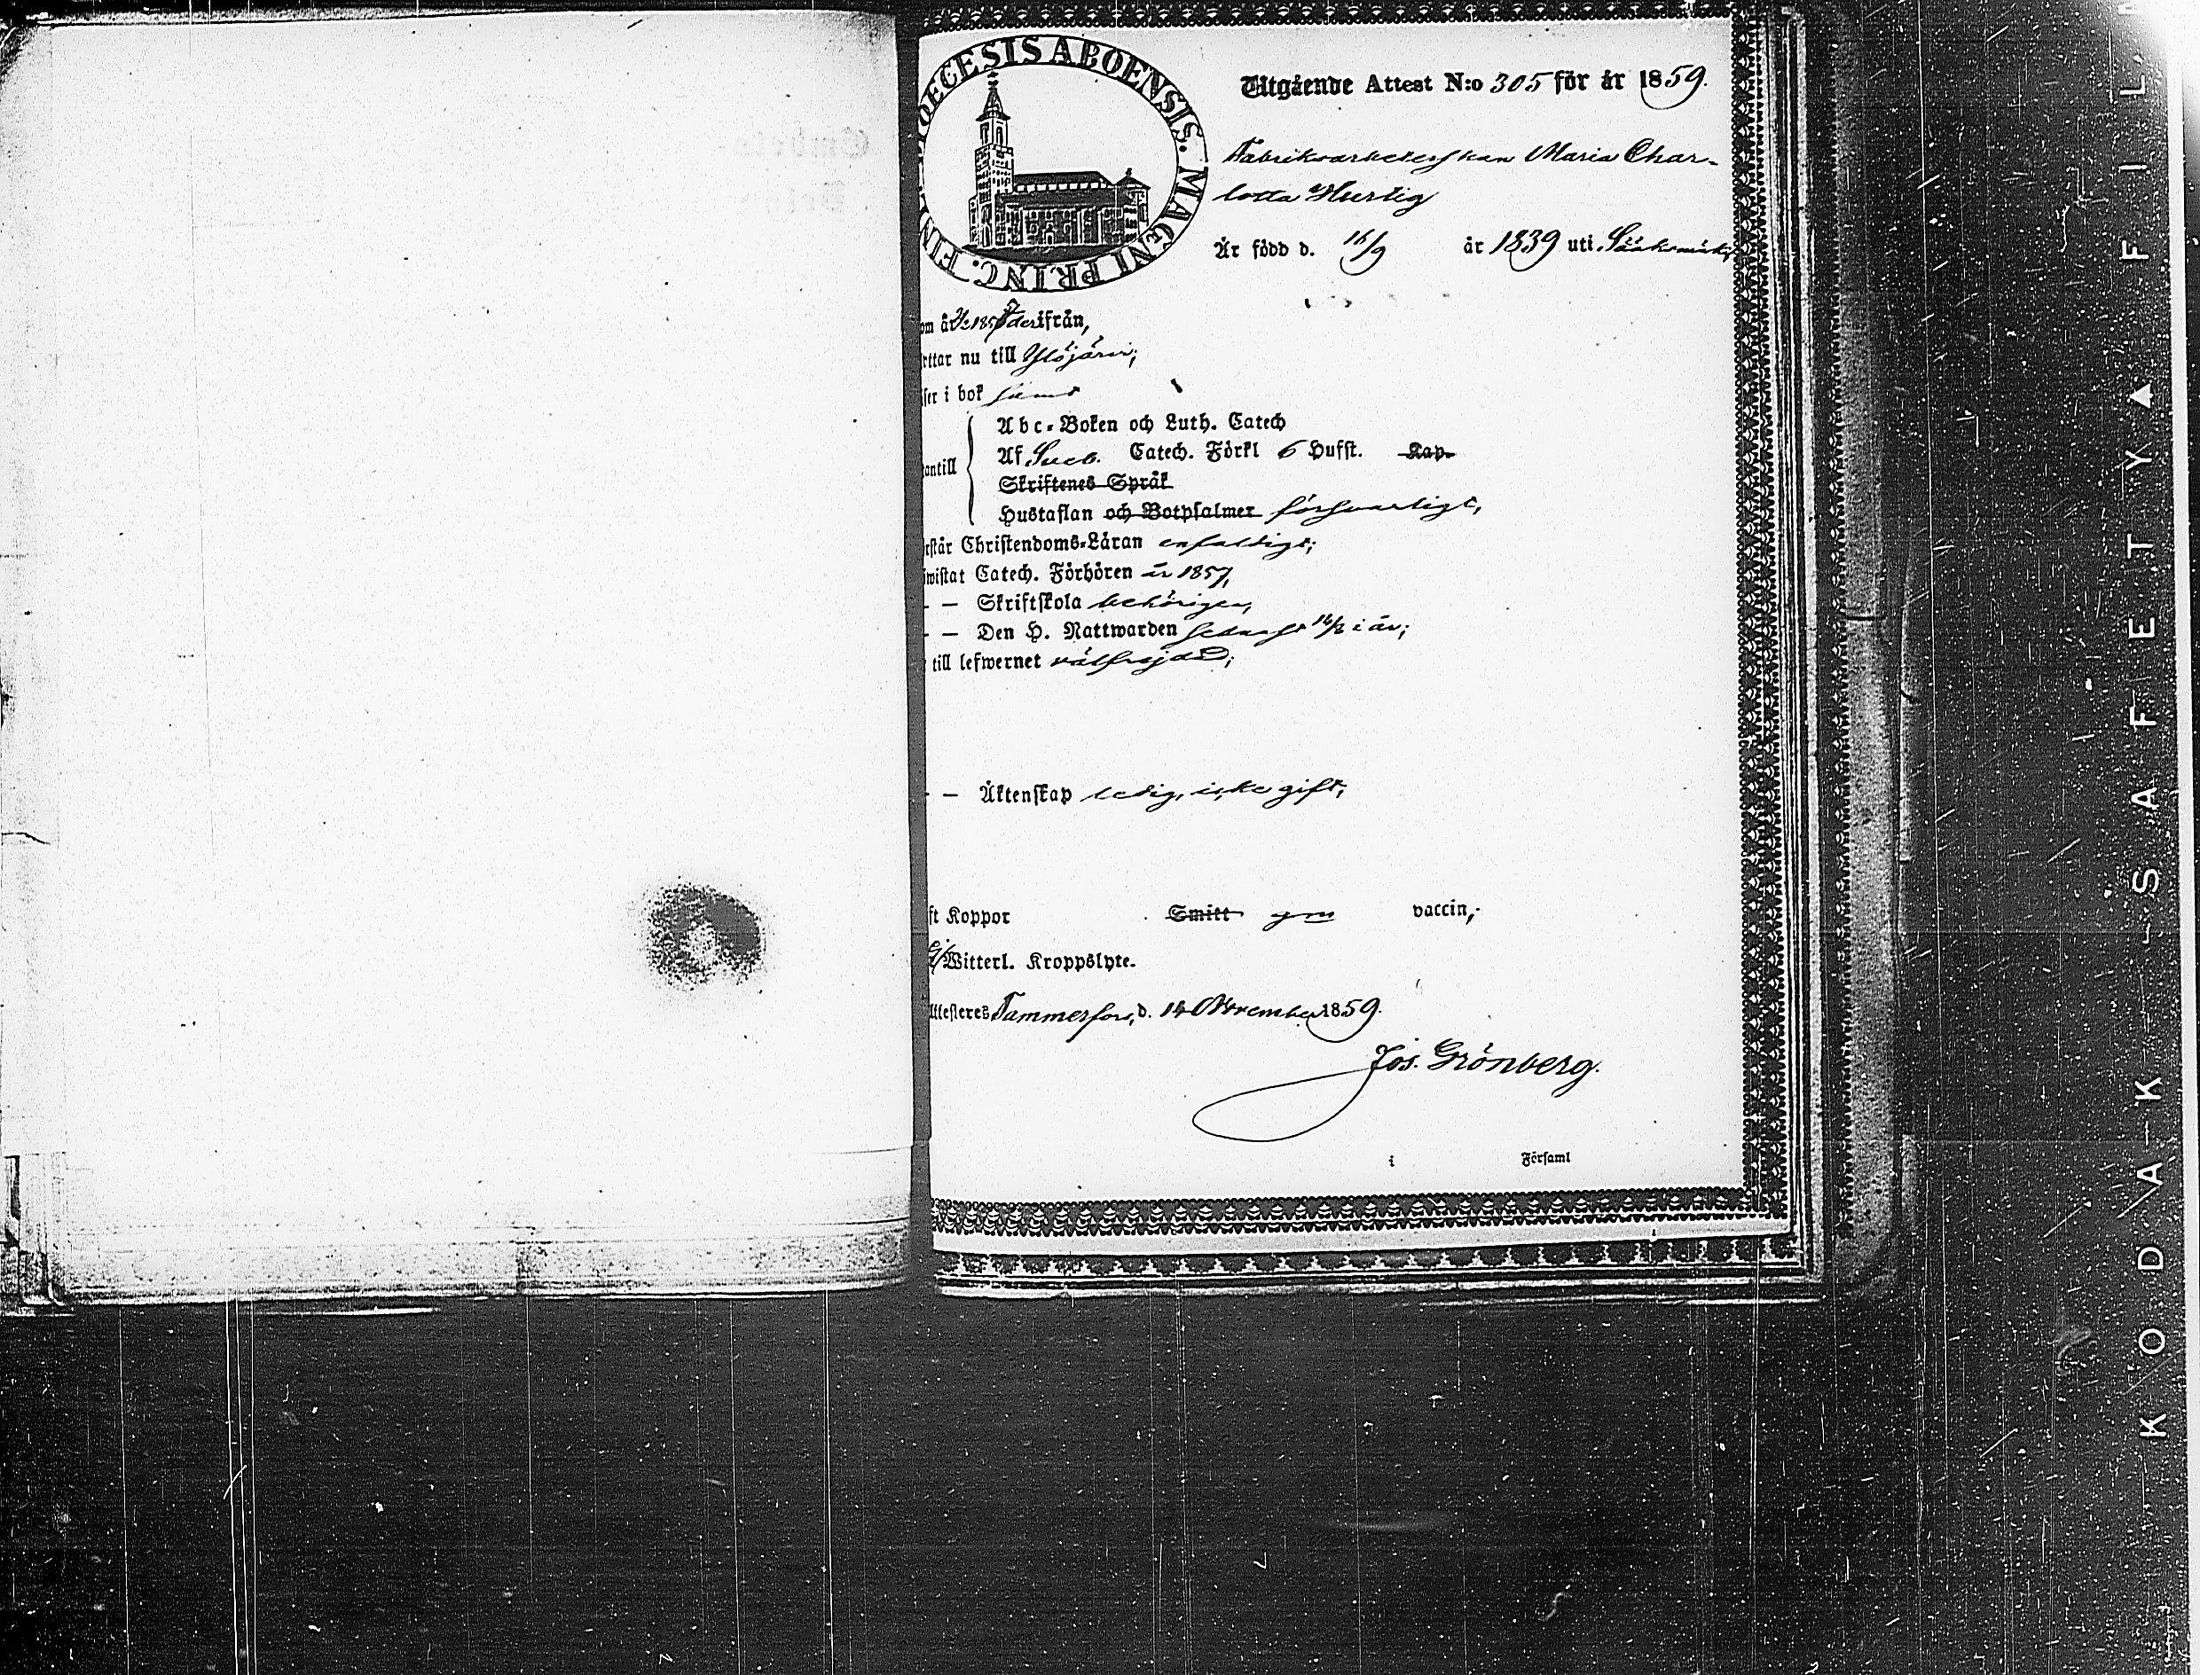 DIOECESIS ABOENSIS. MAGNI PRINC. FIN
Utgående Attest N:o 305 för år 1859.
Fabriksarbeterskan Maria Char-
lotta Hurtig
Är född d. 16/9 år 1839 uti Sääksmäki,
om år derifrån,
ttar nu till Ylöjärvi;
ser i bok
Abc-Boken och Luth. Catech
antill
Af Sveb. Catech. Förkl 6 Hufst. Kap.
Skriftenes Språk
Hustaflan och Botpsalmer försvarligt,
rstår Christendoms-Läran enfaldigt;
wistat Catech. Förhören år 1857,
- — Skriftskola behörigen,
- — Den H. Nattwarden i år;
till lefwernet välfrejdad;
- — Äktenskap ledig, icke gift,
ft Koppor Smitt gm vaccin,
Witterl. Kroppslyte.
Attesteres Tammerfors, d. 14 November 1859.
Jos. Grönberg.
i Församl
KODAK SAFETY ▲ FIL